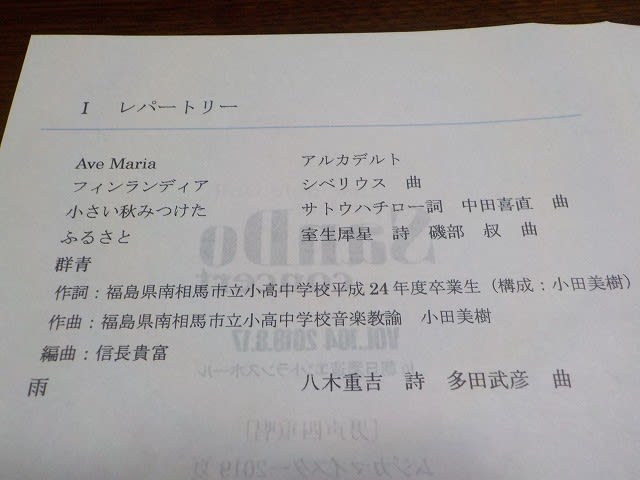 I レパートリー
Ave Maria アルカデルト
フィンランディア シベリウス 曲
小さい秋みつけた サトウハチロー詞 中田喜直 曲
ふるさと 室生犀星 詩 磯部 俶 曲
群青
作詞：福島県南相馬市立小高中学校平成24年度卒業生（構成：小田美樹）
作曲：福島県南相馬市立小高中学校音楽教諭 小田美樹
編曲：信長貴富
雨 八木重吉 詩 多田武彦 曲
SanDo
concert
VOL.104 2019.8.17
［男声四重唱］
ムジカマイスター2019夏